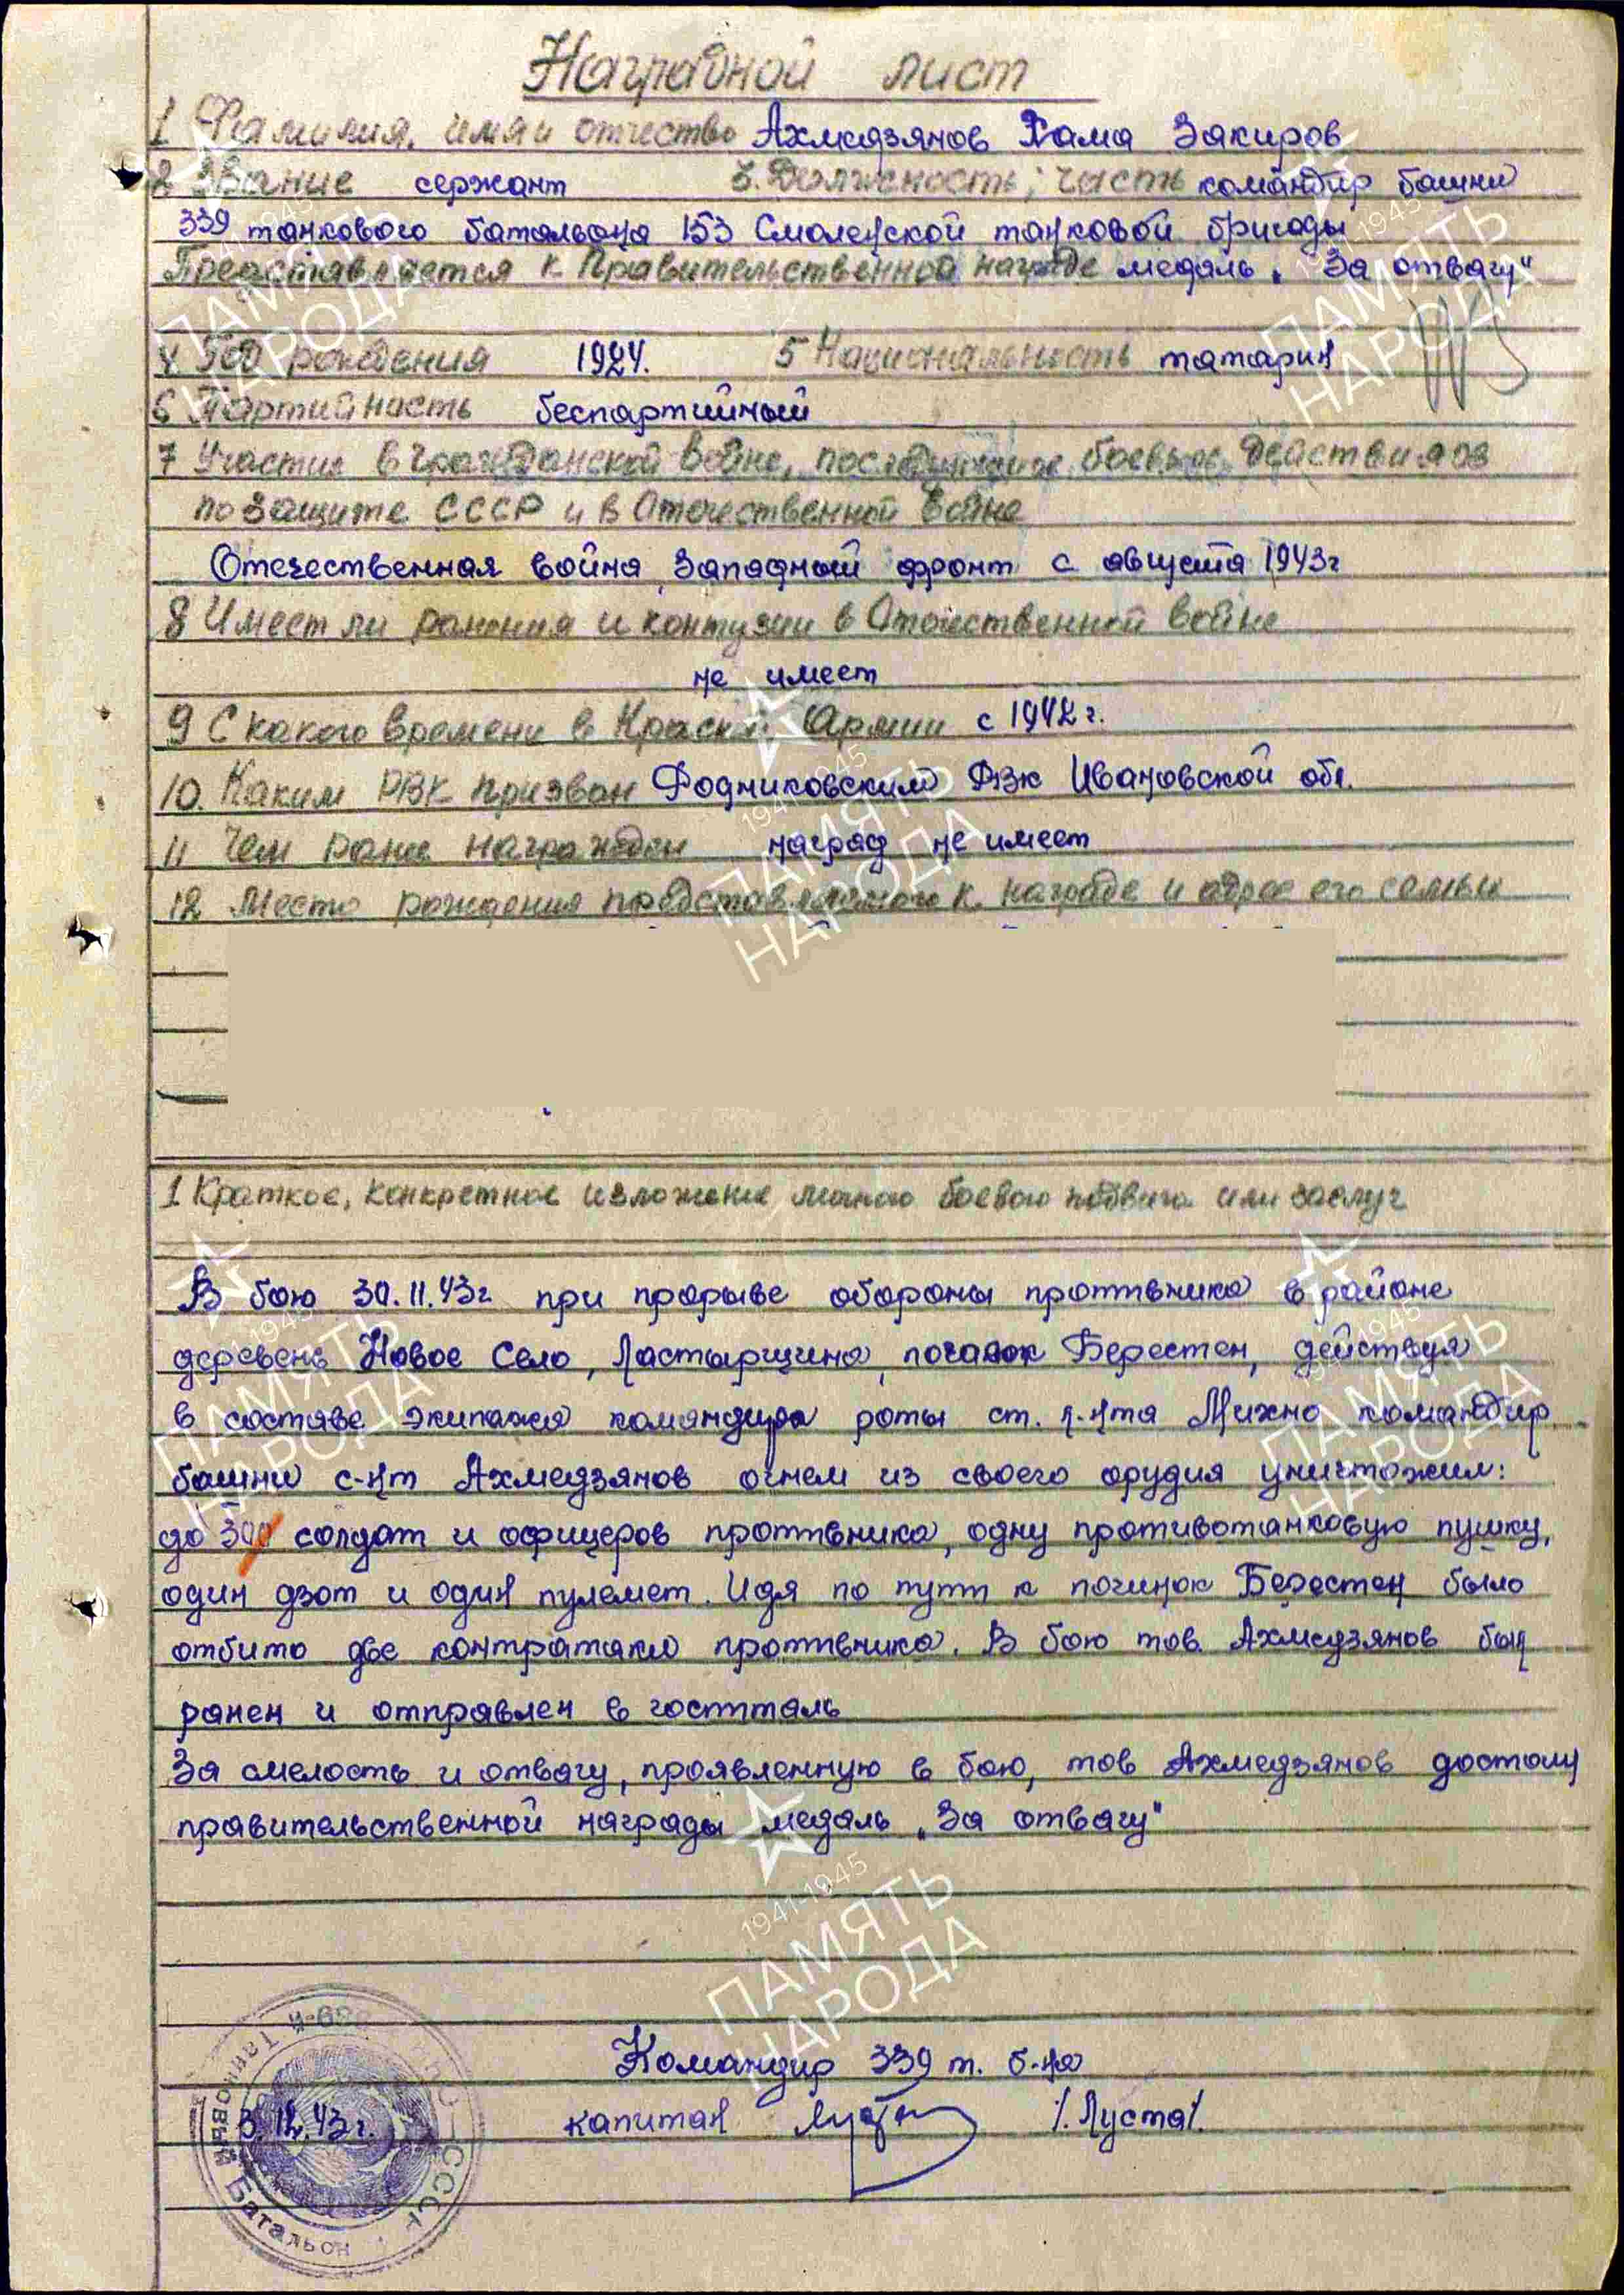 Наградной лист
1 Фамилия, имя и отчество Ахмедзянов Хама Закиров
2 Звание сержант 3. Должность, часть командир башни
339 танкового батальона 153 Смоленской танковой бригады
Представляется к Правительственной награде медаль „За отвагу"
4 Год рождения 1924. 5 Национальность татарин
6 Партийность беспартийный
7 Участие в гражданской войне, последующие боевых действиях
по защите СССР и в Отечественной войне
Отечественная война, Западный фронт с августа 1943г
8 Имеет ли ранения и контузии в Отечественной войне
не имеет
9 С какого времени в Красной Армии с 1942 г.
10. Каким РВК призван Родниковским РВК Ивановской обл.
11 Чем ранее награжден наград не имеет
12 Место рождения представляемого к награде и адрес его семьи
1 Краткое, конкретное изложение личного боевого подвига или заслуг
В бою 30.11.43г при прорыве обороны противника в районе
деревень Новое Село, Ластырщино, Берестен, действуя
в составе экипажа командира роты ст. л-нта Михно командир
башни с-нт Ахмедзянов огнем из своего орудия уничтожил:
до 300 солдат и офицеров противника, одну противотанковую пушку,
один дзот и один пулемет. Идя по пути к починок Берестен было
отбито две контратаки противника. В бою тов. Ахмедзянов был
ранен и отправлен в госпиталь
За смелость и отвагу, проявленную в бою, тов Ахмедзянов достоин
правительственной награды медаль „За отвагу"
Командир 339 т. б-на
3.12.43г. капитан /.Луста/.
339-й Танковый Батальон
СССР
1941-1945
ПАМЯТЬ
НАРОДА